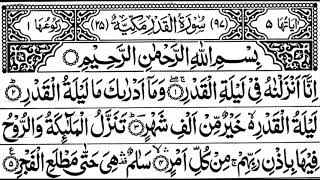 اٰيَاتُهَا ٥ (٩٧) سُوْرَةُ الْقَدْرِ مَكِّيَّةٌ (٢٥) رُكُوْعُهَا ١
بِسْمِ اللّٰهِ الرَّحْمٰنِ الرَّحِيْمِ
اِنَّاۤ اَنْزَلْنٰهُ فِيْ لَيْلَةِ الْقَدْرِ ۝١ وَمَاۤ اَدْرٰىكَ مَا لَيْلَةُ الْقَدْرِ ۝٢
لَيْلَةُ الْقَدْرِ ۙ خَيْرٌ مِّنْ اَلْفِ شَهْرٍ ۝٣ تَنَزَّلُ الْمَلٰٓئِكَةُ وَالرُّوْحُ
فِيْهَا بِاِذْنِ رَبِّهِمْ ۚ مِنْ كُلِّ اَمْرٍ ۝٤ سَلٰمٌ ۛ هِيَ حَتّٰى مَطْلَعِ الْفَجْرِ ۝٥